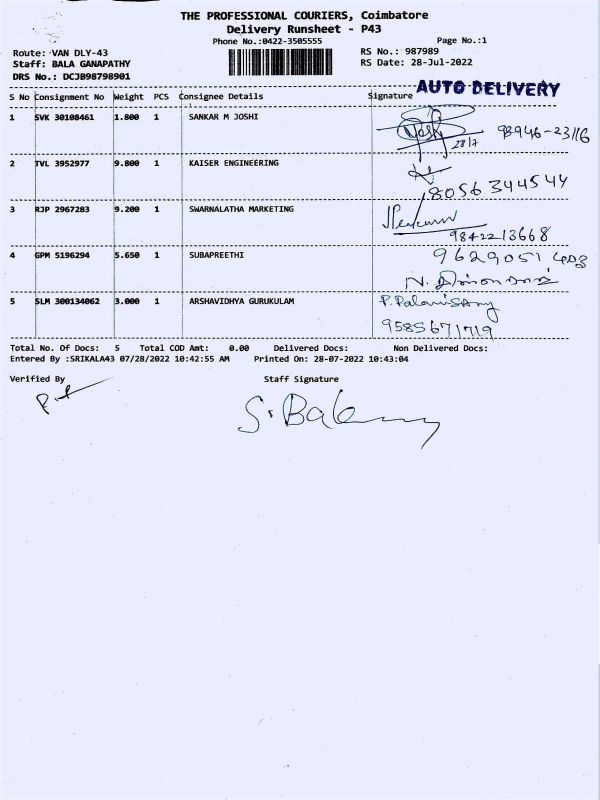 THE PROFESSIONAL COURIERS, Coimbatore
Delivery Runsheet - P43
Phone No.:0422-3505555
Page No.:1
Route: VAN DLY-43
RS No.: 987989
Staff: BALA GANAPATHY
RS Date: 28-Jul-2022
DRS No.: DCJB98798901
AUTO DELIVERY
S No Consignment No Weight PCS Consignee Details Signature
1 SVK 30108461 1.800 1 SANKAR M JOSHI
28/7 98946-23116
2 TVL 3952977 9.800 1 KAISER ENGINEERING
8056344544
3 RJP 2967283 9.200 1 SWARNALATHA MARKETING
9842213668
4 GPM 5196294 5.650 1 SUBAPREETHI 9629051403
5 SLM 300134062 3.000 1 ARSHAVIDHYA GURUKULAM P. Palanisamy
9585671719
Total No. Of Docs: 5 Total COD Amt: 0.00 Delivered Docs: Non Delivered Docs:
Entered By :SRIKALA43 07/28/2022 10:42:55 AM Printed On: 28-07-2022 10:43:04
Verified By Staff Signature